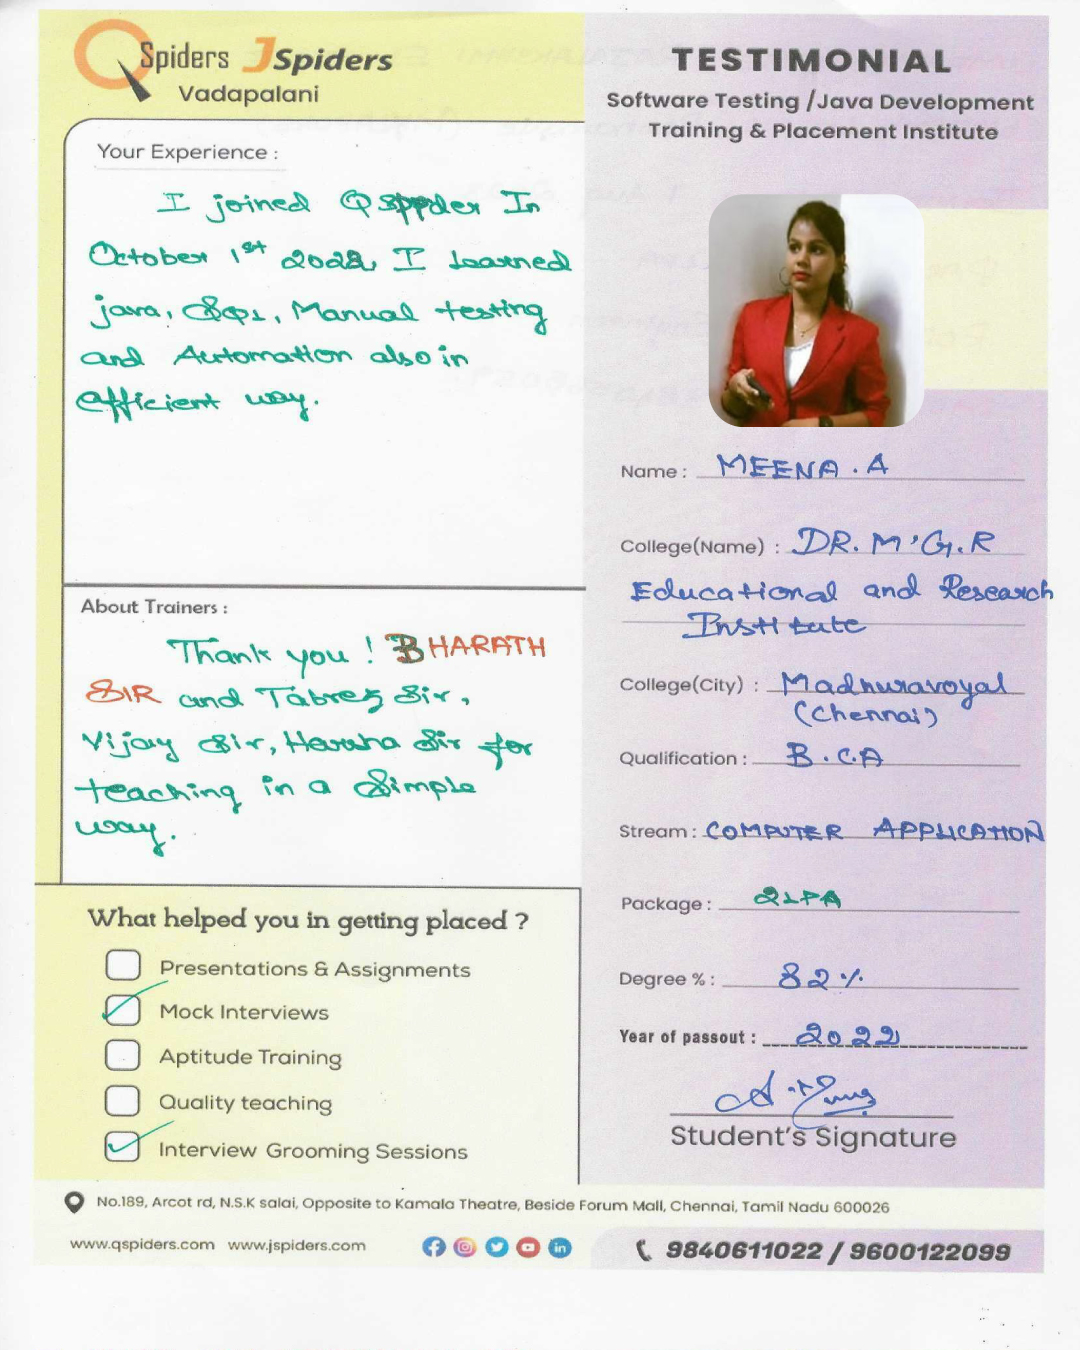 QSpiders JSpiders
Vadapalani
TESTIMONIAL
Software Testing /Java Development
Training & Placement Institute
Your Experience :
I joined Qspider In
October 1st 2022, I Learned
java, SQL, Manual testing
and Automation also in
efficient way.
About Trainers :
Thank you ! BHARATH
SIR and Tabrez Sir,
Vijay Sir, Harsha Sir for
teaching in a Simple
way.
What helped you in getting placed ?
Presentations & Assignments
Mock Interviews
Aptitude Training
Quality teaching
Interview Grooming Sessions
Name : MEENA . A
College(Name) : DR. M'G.R
Educational and Research
Institute
College(City) : Madhuravoyal
(Chennai)
Qualification : B.C.A
Stream : COMPUTER APPLICATION
Package : 2LPA
Degree % : 82%
Year of passout : 2022
Student's Signature
No.189, Arcot rd, N.S.K salai, Opposite to Kamala Theatre, Beside Forum Mall, Chennai, Tamil Nadu 600026
www.qspiders.com www.jspiders.com
9840611022 / 9600122099